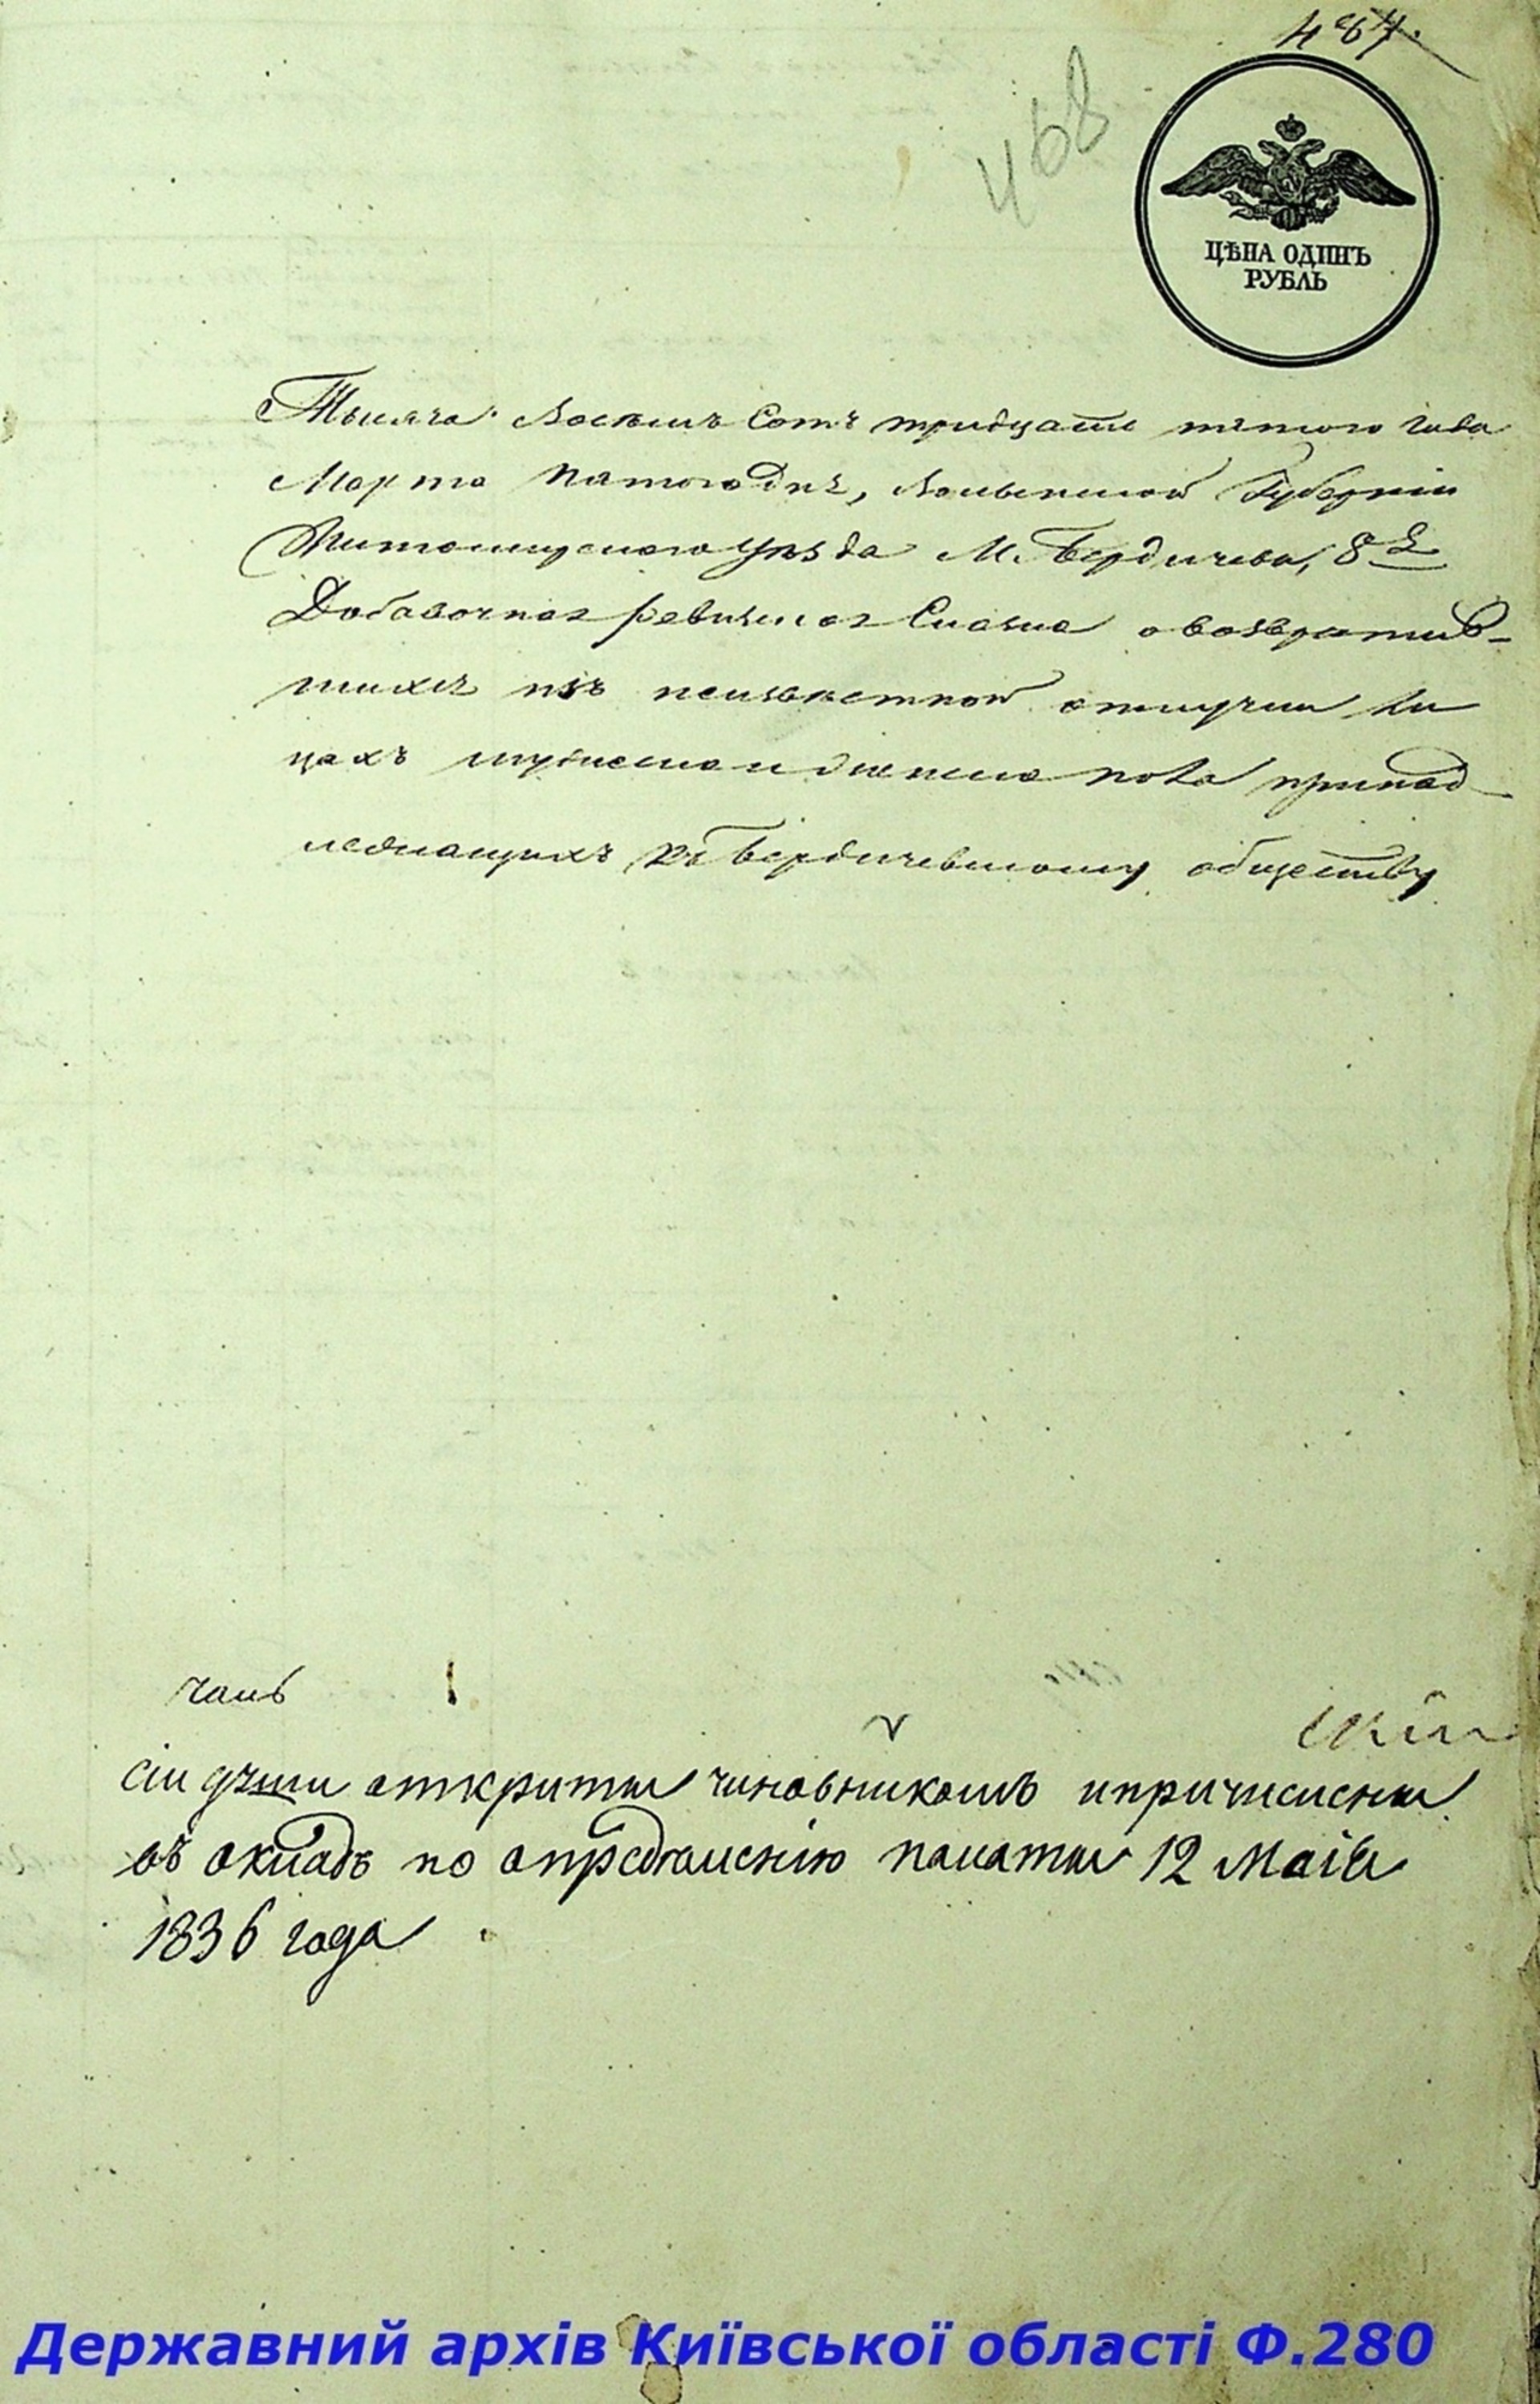 487.
468
ЦѢНА ОДИНЪ
РУБЛЬ
Тысяча Восемъ Сотъ тридцать пятого года
Марта пятого дня, Волынской Губерніи
Житомирского уѣзда М. Бердичева, 8я
Добавочная ревизская Сказка о возвратив-
шихся изъ неизвѣстной отлучки ли
цахъ мужеска и женска пола принад
лежащихъ къ Бердичевскому обществу
сіи души открыты чиновникомъ и причислены
въ окладъ по опредѣленію палаты 12 Маія
1836 года
Державний архів Київської області Ф.280